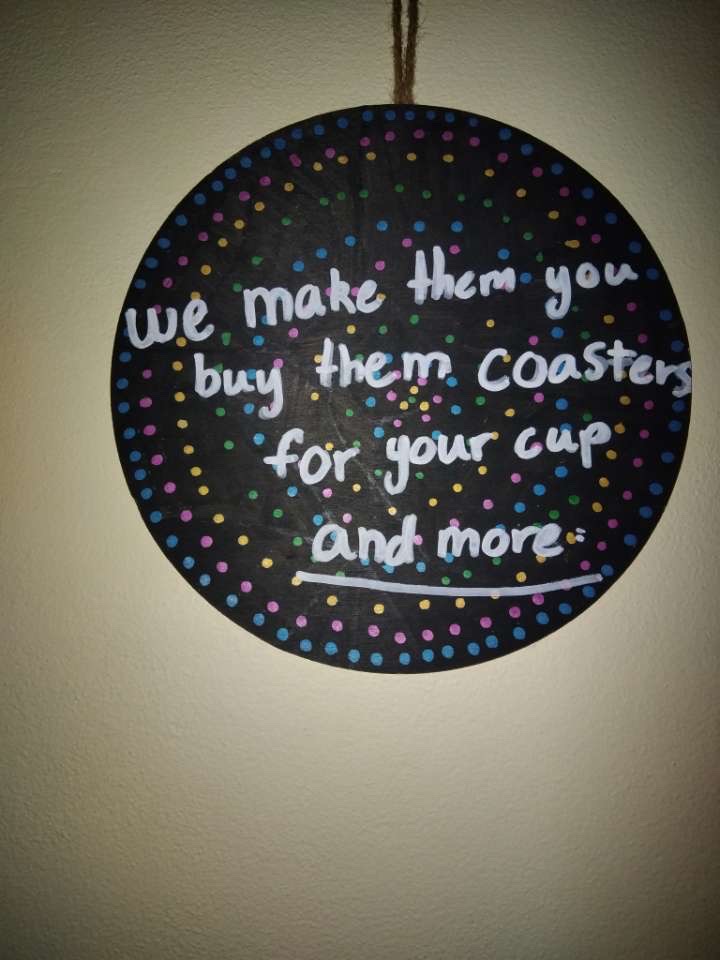 we make them you
buy them coasters
for your cup
and more: